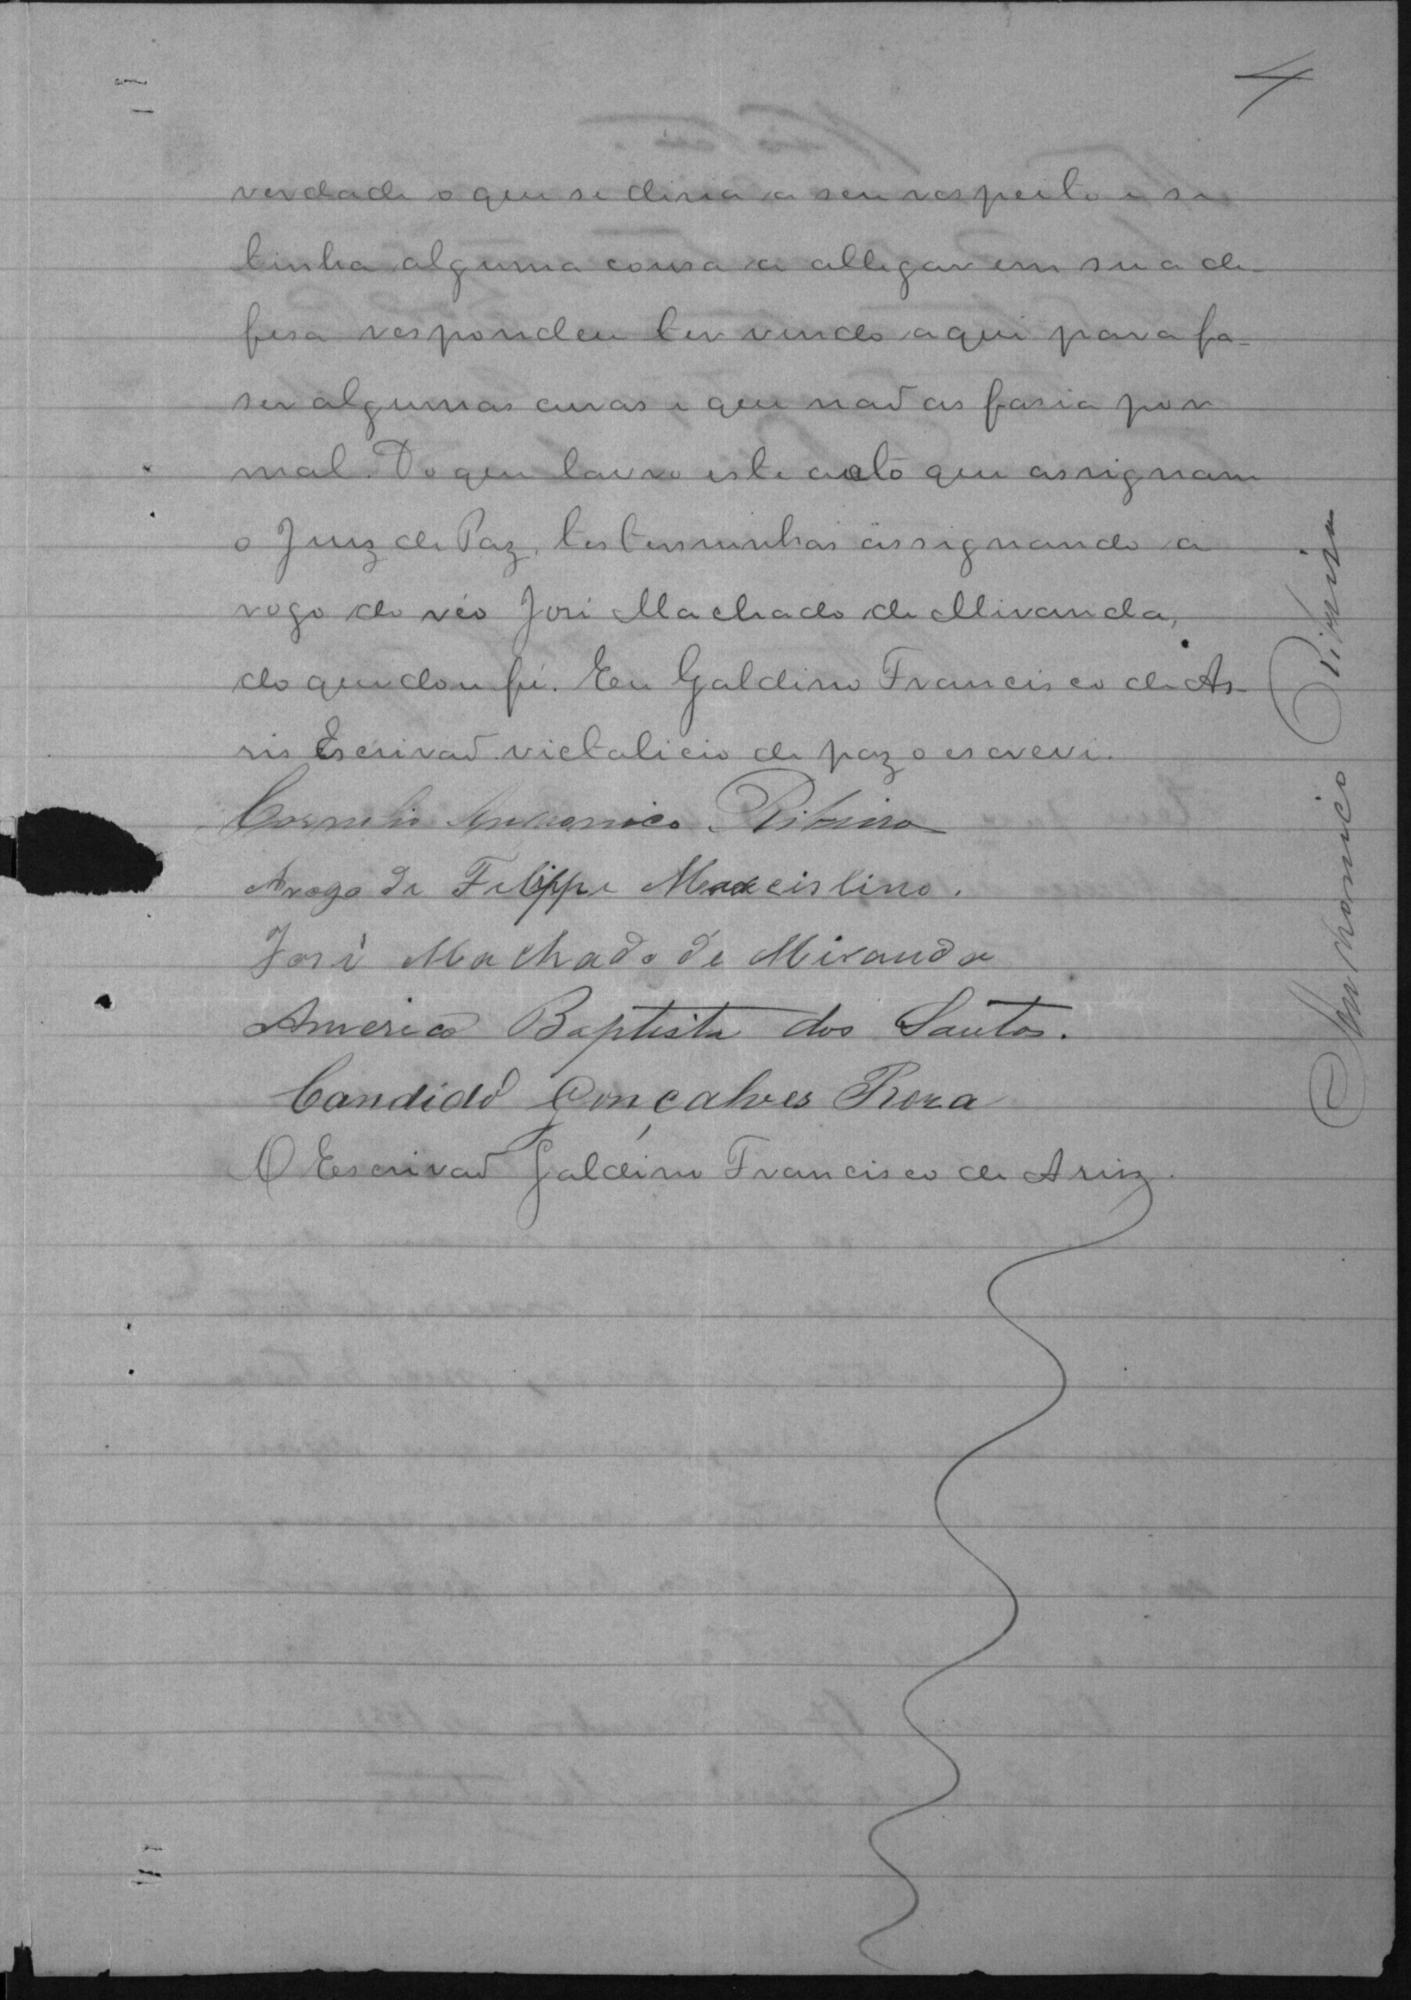 4
verdade o que se disia a seu respeito e se
tinha alguma cousa a allegar em sua de-
fesa respondeu ter vindo aqui para fa-
ser algumas curas e que não as fasia por
mal. Do que lavro este auto que assignam
o Juiz de Paz, testemunhas assignando a
rogo do réo José Machado de Miranda,
do que dou fé. Eu Galdino Francisco de As-
sis Escrivão victalicio de paz o escrevi.
Cornelio Anchonico Ribeiro
Arogo de Felippe Marcislino.
José Machado de Miranda
Americo Baptista dos Santos.
Candido Gonçalves Roza
O Escrivão Galdino Francisco de
Anchonico Ribeiro